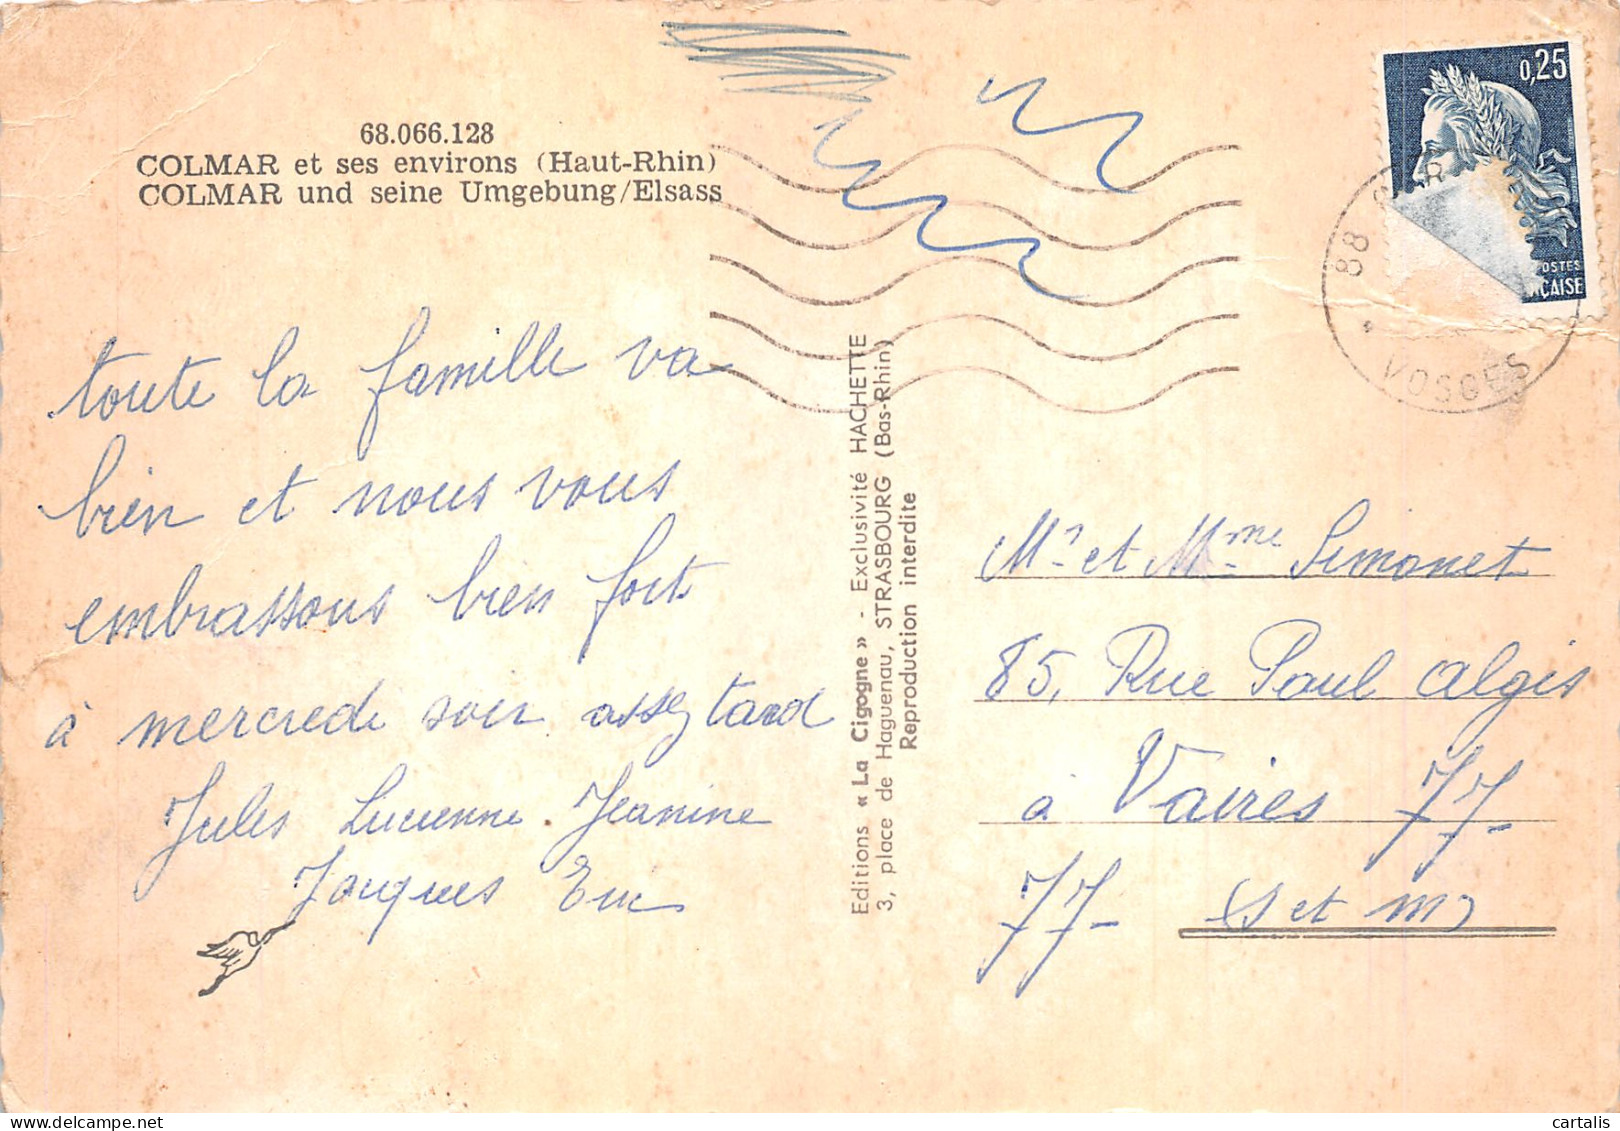 68.066.128
COLMAR et ses environs (Haut-Rhin)
COLMAR und seine Umgebung/Elsass
toute la famille va
bien et nous vous
embrassons bien fort
à mercredi soir assez tard
Jules Lucienne Jeanine
Jacques Eric
Editions « La Cigogne » - Exclusivité HACHETTE
3, place de Haguenau, STRASBOURG (Bas-Rhin)
Reproduction interdite
0,25
POSTES
ÇAISE
88
VOSGES
Mr et Mme Simonet
85, Rue Paul Algis
à Vaires 77-
77- (S et M)
cartalis